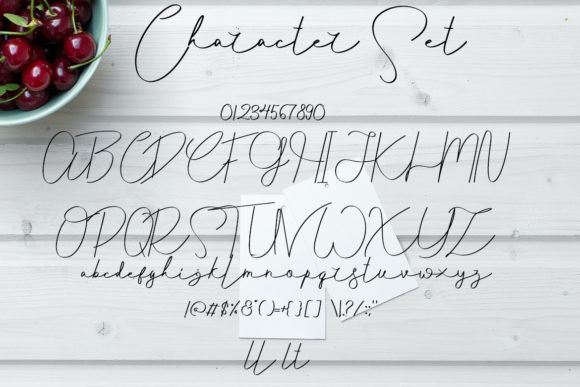 Character Set
01234567890
ABCDEFGHIJKLMN
OPQRSTUVWXYZ
abcdefghijklmnopqrstuvwxyz
!@#$%&*()=+{}[] \|.?/:;"
Ut Ut